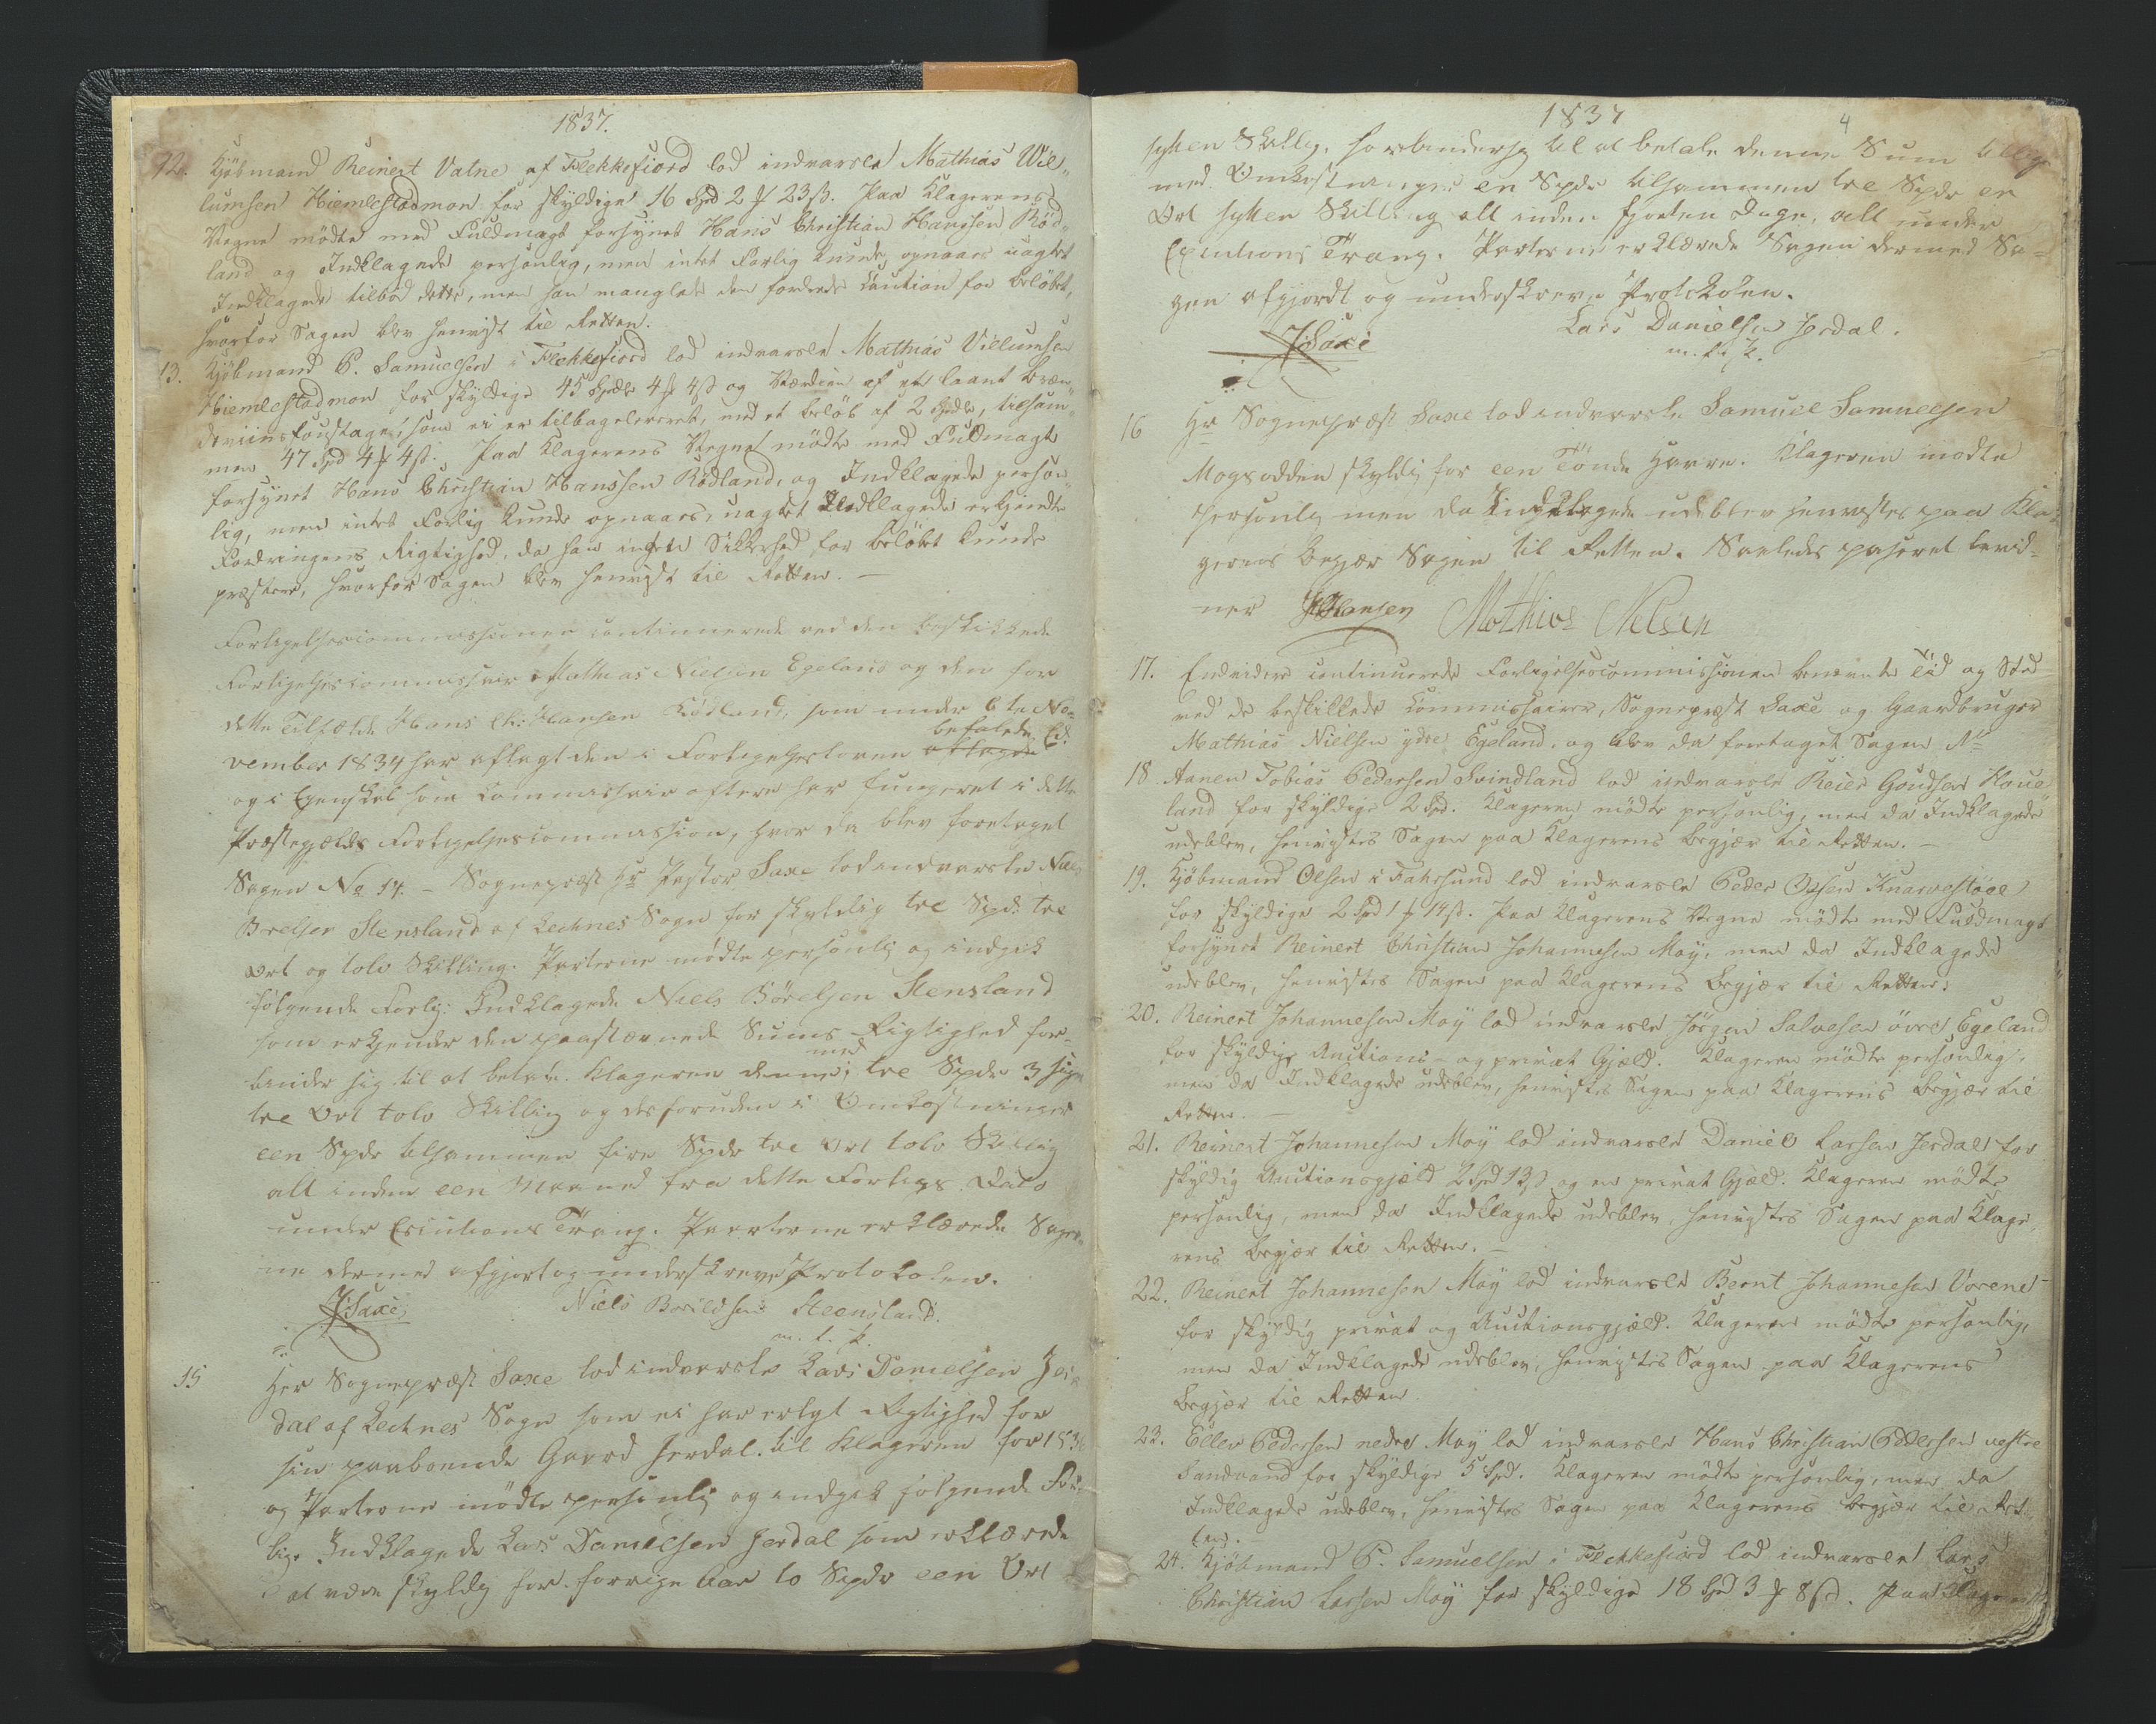 1837.
12. Kjöbmand Reinert Vatne af Flekkefiord lod indvarsle Mathias Wil-
lumsen Hiemlestadmon for skyldige 16 Spd 2 ƒ 23ß. Paa Klagerens
Vegne mödte med Fuldmagt forsynet Hans Christian Hanssen Röd-
land og Indklagede personlig, men intet Forlig kunde opnaaes uagtet
Indklagede tilbød dette, men han manglede den fordrede Caution for belöbet,
hvorfor Sagen blev henviist til Retten.
13. Kjöbmand P. Samuelsen i Flekkefiord lod indvarsle Mathias Villumsen
Hiemlestadmon for skyldige 45 Spdlr 4 ƒ 4ß og Værdien af et laant bræn-
deviinsfoustage, som ei er tilbageleveret, med et beløb af 2 Spdlr, tilsam-
men 47 Spd 4 ƒ 4ß. Paa Klagerens Vegne mödte med Fuldmagt
forsynet Hans Christian Hanssen Rödland, og Indklagede person-
lig, men intet Forlig kunde opnaaes, uagtet Indklagede erkjendte
Fordringens Rigtighed, da han ingen Sikkerhed for belöbet kunde
præstere, hvorfor Sagen blev henviist til Retten. —
Forligelsescommissionen continuerede ved den beskikkede
Forligelsescommissair Mathias Nielsen Egeland og den for
dette Tilfælde Hans Ch: Hansen Rödland, som under 6te No-
befalede Ed.
vember 1834 har aflagt den i Forligelsesloven aflagde
og i Egenskab som Commissair oftere har fungeret i dette
Præstegjelds Forligelsescommission, hvor da blev foretaget
Sagen No 14. - Sognepræst Hr Pastor Saxe lod indvarsle Niels
Brelsen Stensland af Lechnes Sogn for skyldig tre Spd. tre
Ort og tolv Skilling. Parterne mödte personlig og indgik
følgende Forlig: Indklagede Niels Börelsen Stensland
som erkjender den paastævnede Sums Rigtighed for-
med
binder sig til at betale Klageren denne, tre Spdr 3 siger
tre Ort tolv Skilling og desforuden i Omkostninger
een Spdr tilsammen fire Spdr tre Ort tolv Skilling
alt inden een Maaned fra dette Forligs Dato
under Executions Tvang. Parterne erklærede Sager-
ne dermed afgjort og underskreve Protokolen.
J: Saxe Niels Borildsen Steensland.
m. f. p.
15 Her Sognepræst Saxe lod indvarsle Lars Danielsen Jer-
dal af Lechnes Sogn som ei har erlagt Rigtighed for
sin paaboende Gaard Jerdal til Klageren for 1836
og Parterne mödte personlig og indgik følgende For-
lig. Indklagede Lars Danielsen Jerdal som erklærede
at være skyldig for forrige Aar to Spdr een Ort
1837
4
sytten Skilling, forbinder sig til at betale denne Sum tillige
med Omkostninger en Spdr tilsammen tre Spdr en
Ort sytten Skilling alt inden fjorten Dage, alt under
Executions Tvang. Parterne erklærede Sagen dermed Sa-
gen afgjordt og underskreve Protokolen.
J Saxe Lars Danielsen Jerdal.
m. f. p.
16 Hr Sognepræst Saxe lod indvarsle Samuel Samuelsen
Mogsodden skyldig for een Tönde Havre. Klageren mödte
personlig men da Indklagede udeblev henvistes paa Kla-
gerens Begjær Sagen til Retten. Saaledes passeret bevid-
ner H Hansen Mathias Nielsen
17. Endvidere continuerede Forligelsescommissionen benævnte Tid og Sted
ved de beskikkede Commissairer, Sognepræst Saxe og Gaardbruger
Mathias Nielsen ydre Egeland, og blev da foretaget Sagen No
18. Aanen Tobias Pedersen Svindland lod indvarsle Reier Goudsen Houe-
land for skyldige 2 Spd. Klageren mödte personlig, men da Indklagede
udeblev, henvistes Sagen paa Klagerens begjær til Retten. —
19. Kjöbmand Olsen i Fahrsund lod indvarsle Peder Olsen Knarvestöel
for skyldige 2 Spd 1 ƒ 14ß. Paa Klagerens Vegne mödte med Fuldmagt
forsynet Reinert Christian Johannesen Moy, men da Indklagede
udeblev, henvistes Sagen paa Klagerens Begjær til Retten.
20. Reinert Johannesen Moy lod indvarsle Jörgen Salvesen övre Egeland
for skyldige Auctions- og privat Gjæld. Klageren mödte personlig,
men da Indklagede udeblev, henvistes Sagen paa Klagerens begjær til
Retten. —
21. Reinert Johannesen Moy lod indvarsle Daniel Larsen Jerdal for
skyldig Auctionsgjæld 2 Spd 12ß og en privat Gjæld. Klageren mödte
personlig, men da Indklagede udeblev, henvistes Sagen paa Klage-
rens begjær til Retten. —
22. Reinert Johannesen Moy lod indvarsle Bernt Johannesen Vorene
for skyldig privat og Auctionsgjæld. Klageren mödte personlig,
men da Indklagede udeblev, henvistes Sagen paa Klagerens
Begjær til Retten.
23. Ellev Pedersen nedre Moy lod indvarsle Hans Christian Pedersen vestre
Sandvand for skyldige 5 Spd. Klageren mödte personlig, men da
Indklagede udeblev, henvistes Sagen paa Klagerens begjær til Ret-
ten. —
24. Kjöbmand P. Samuelsen i Flekkefiord lod indvarsle Lars
Christian Larsen Moy for skyldige 18 Spd 3 ƒ 8ß. Paa Klagerens